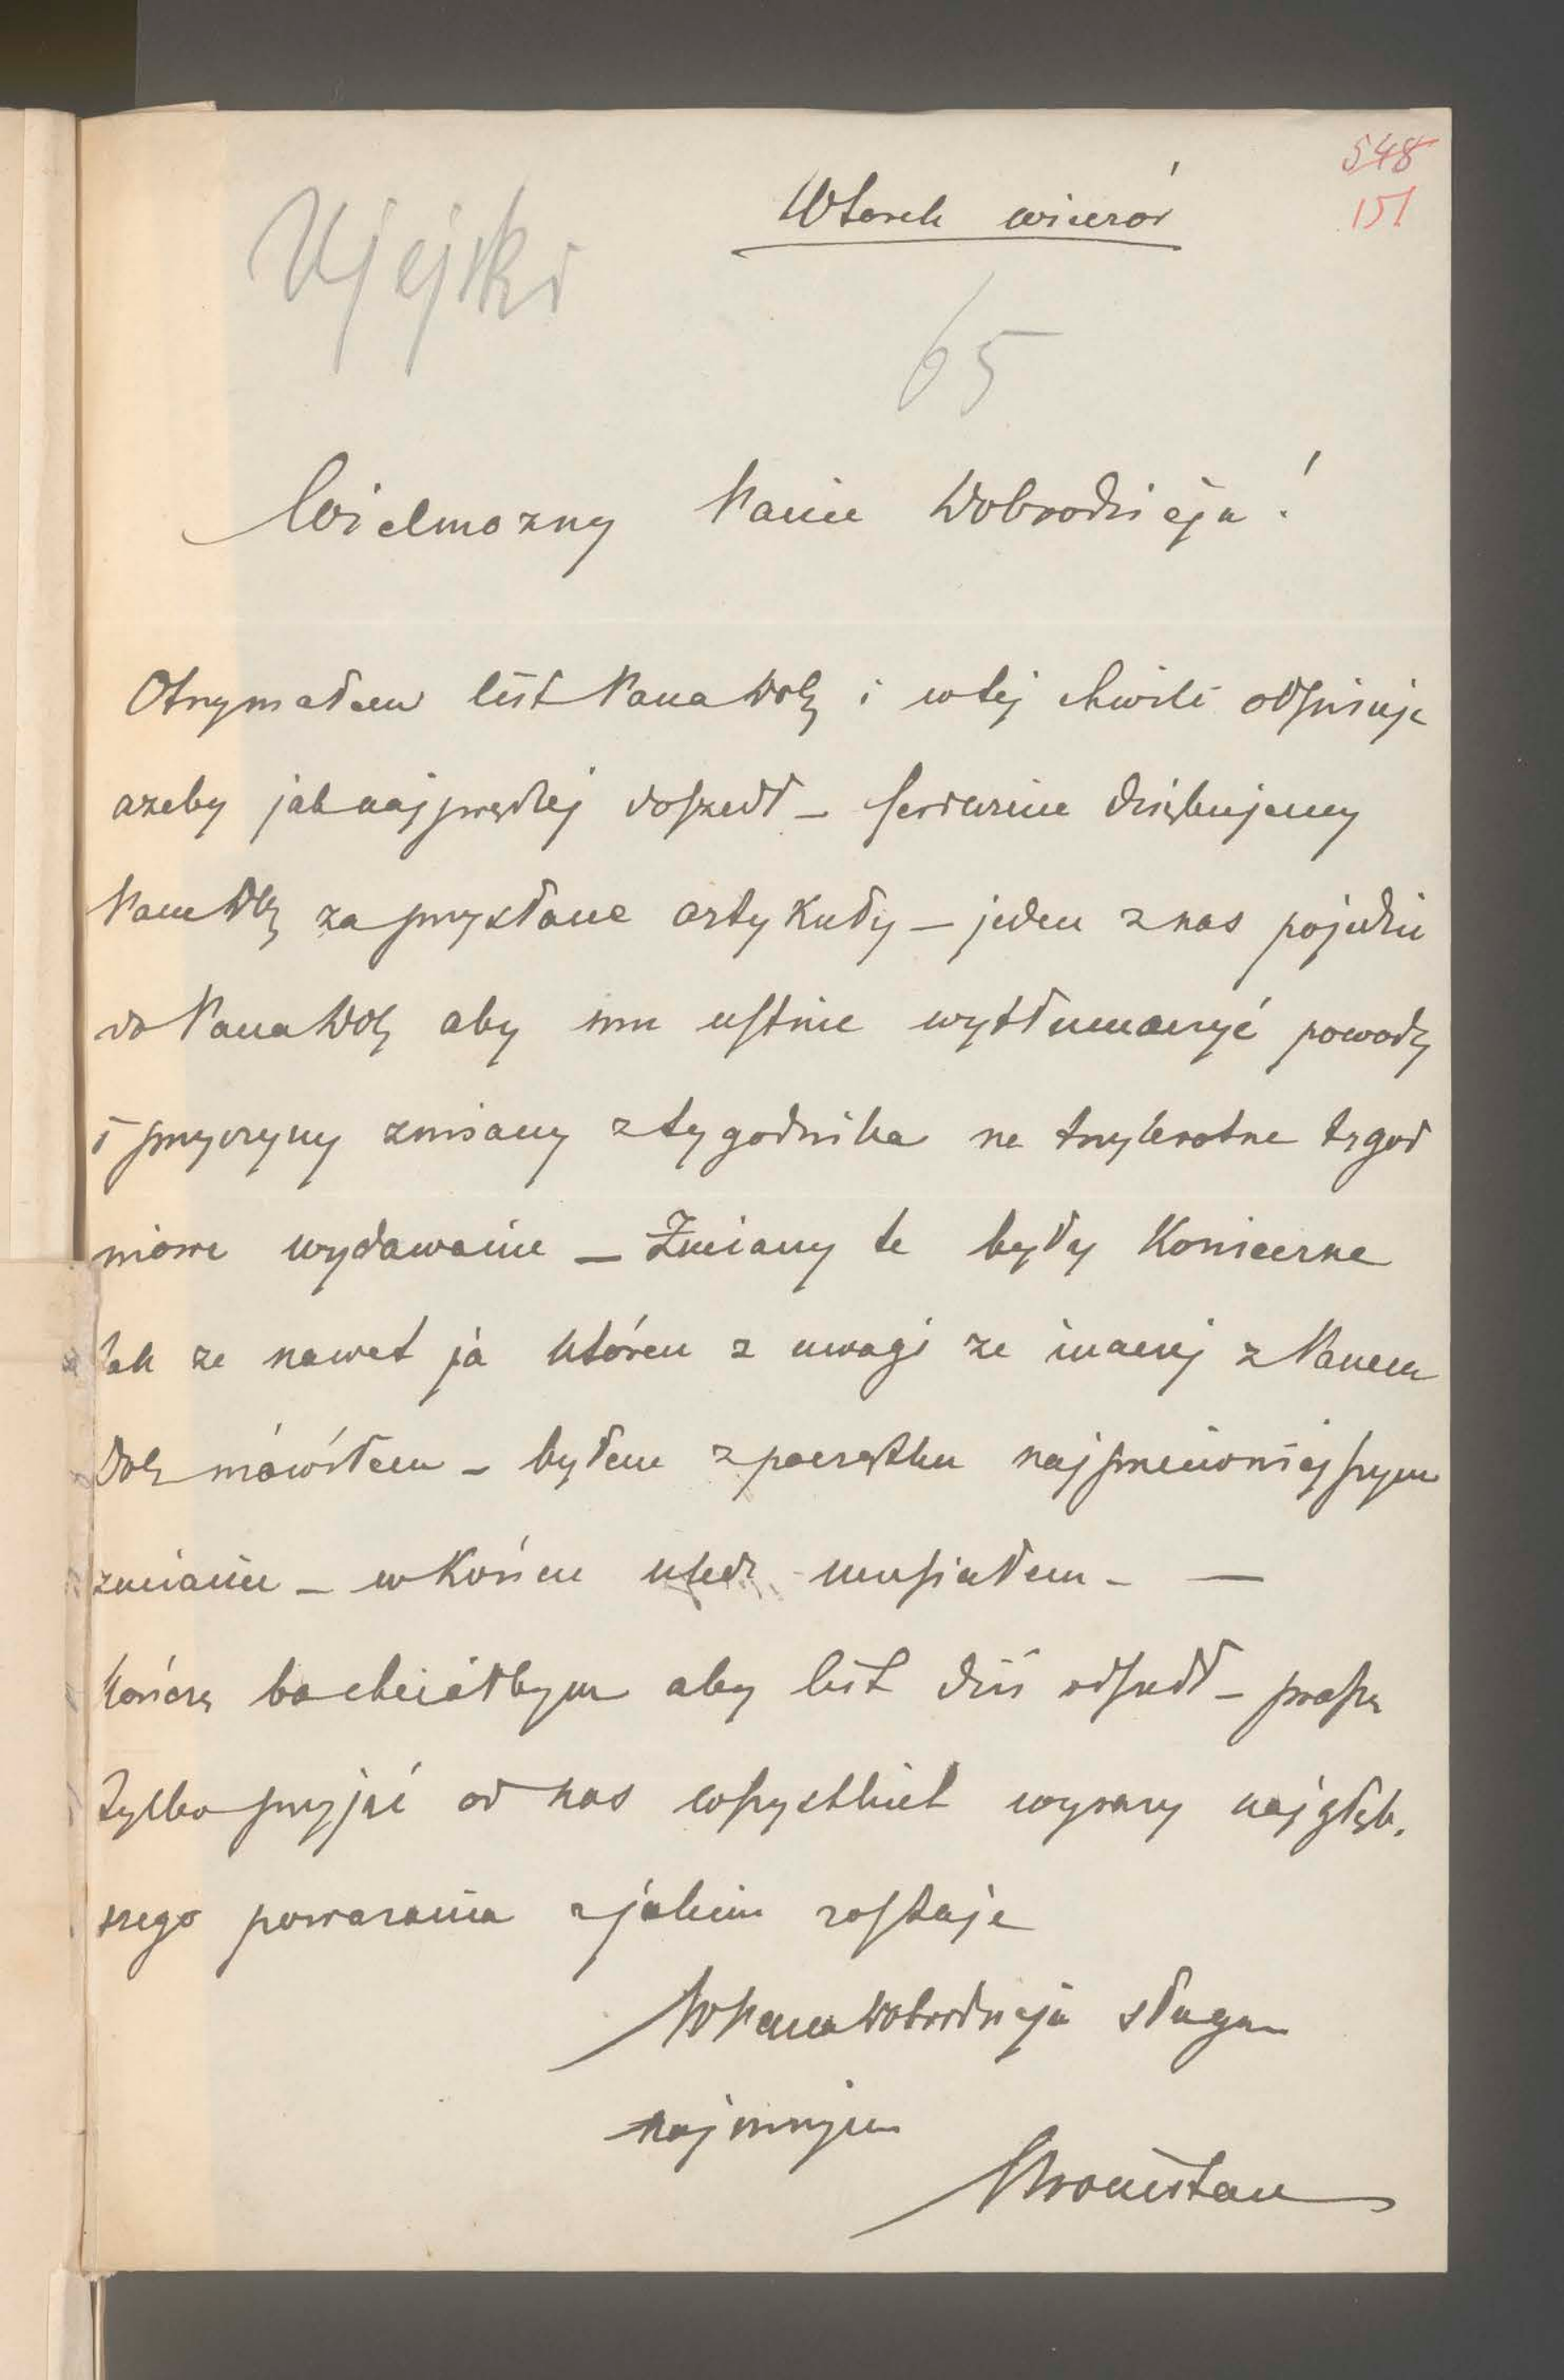 548
151
Wtorek wieczór
Ujejski
65
Wielmozny Panie Dobrodzieju!
Otrzymałem list Pana Dob i wtej chwili odpisuje
azeby jaknajprędzej doszedł – serdecznie dziękujemy
Panu Dob za przysłane artykuły – jeden znas pojedzie
do Pana Dob aby mu ustnie wytłumaczyć powody
i przyczyny zmiany ztygodnika na trzykrotne tygod
niowe wydawanie – Zmiany te były Konieczne
tak ze nawet ja którem z uwagi ze inaczej z Panem
Dob mówiłem – byłem zpoczątku najprzeciwniejszym
zmianie – w Końcu uledz musiałem – —
Kończę bo chciałbym aby list dziś odszedł – proszę
tylko przyjąć od nas wszystkich wyrazy najgłęb.
szego powazania zjakim zostaje
WPana Dobrodzieja sługa
najnizszym